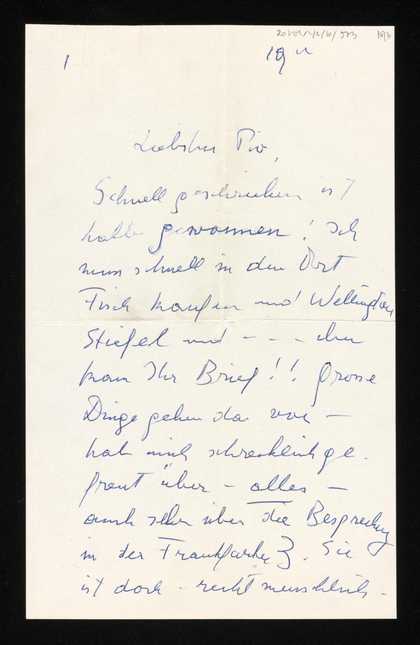 1
Liebster Pio,
Schnell geschrieben ist
halb gewonnen! Ich
muss schnell in den Dorf
Fisch kaufen und Wellington
Stiefel und - - - da
kam Ihr Brief!! Grosse
Dinge gehen da vor —
hab mich schrecklich ge-
freut über - alles -
auch sehr über die Besprechung
in der Frankfurter Z. Sie
ist doch - recht menschlich -